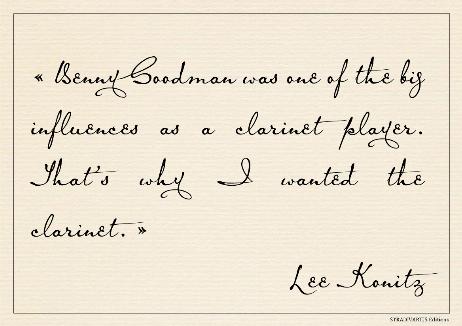 « Benny Goodman was one of the big
influences as a clarinet player.
That's why I wanted the
clarinet. »
Lee Konitz
STRADIVARIUS Editions